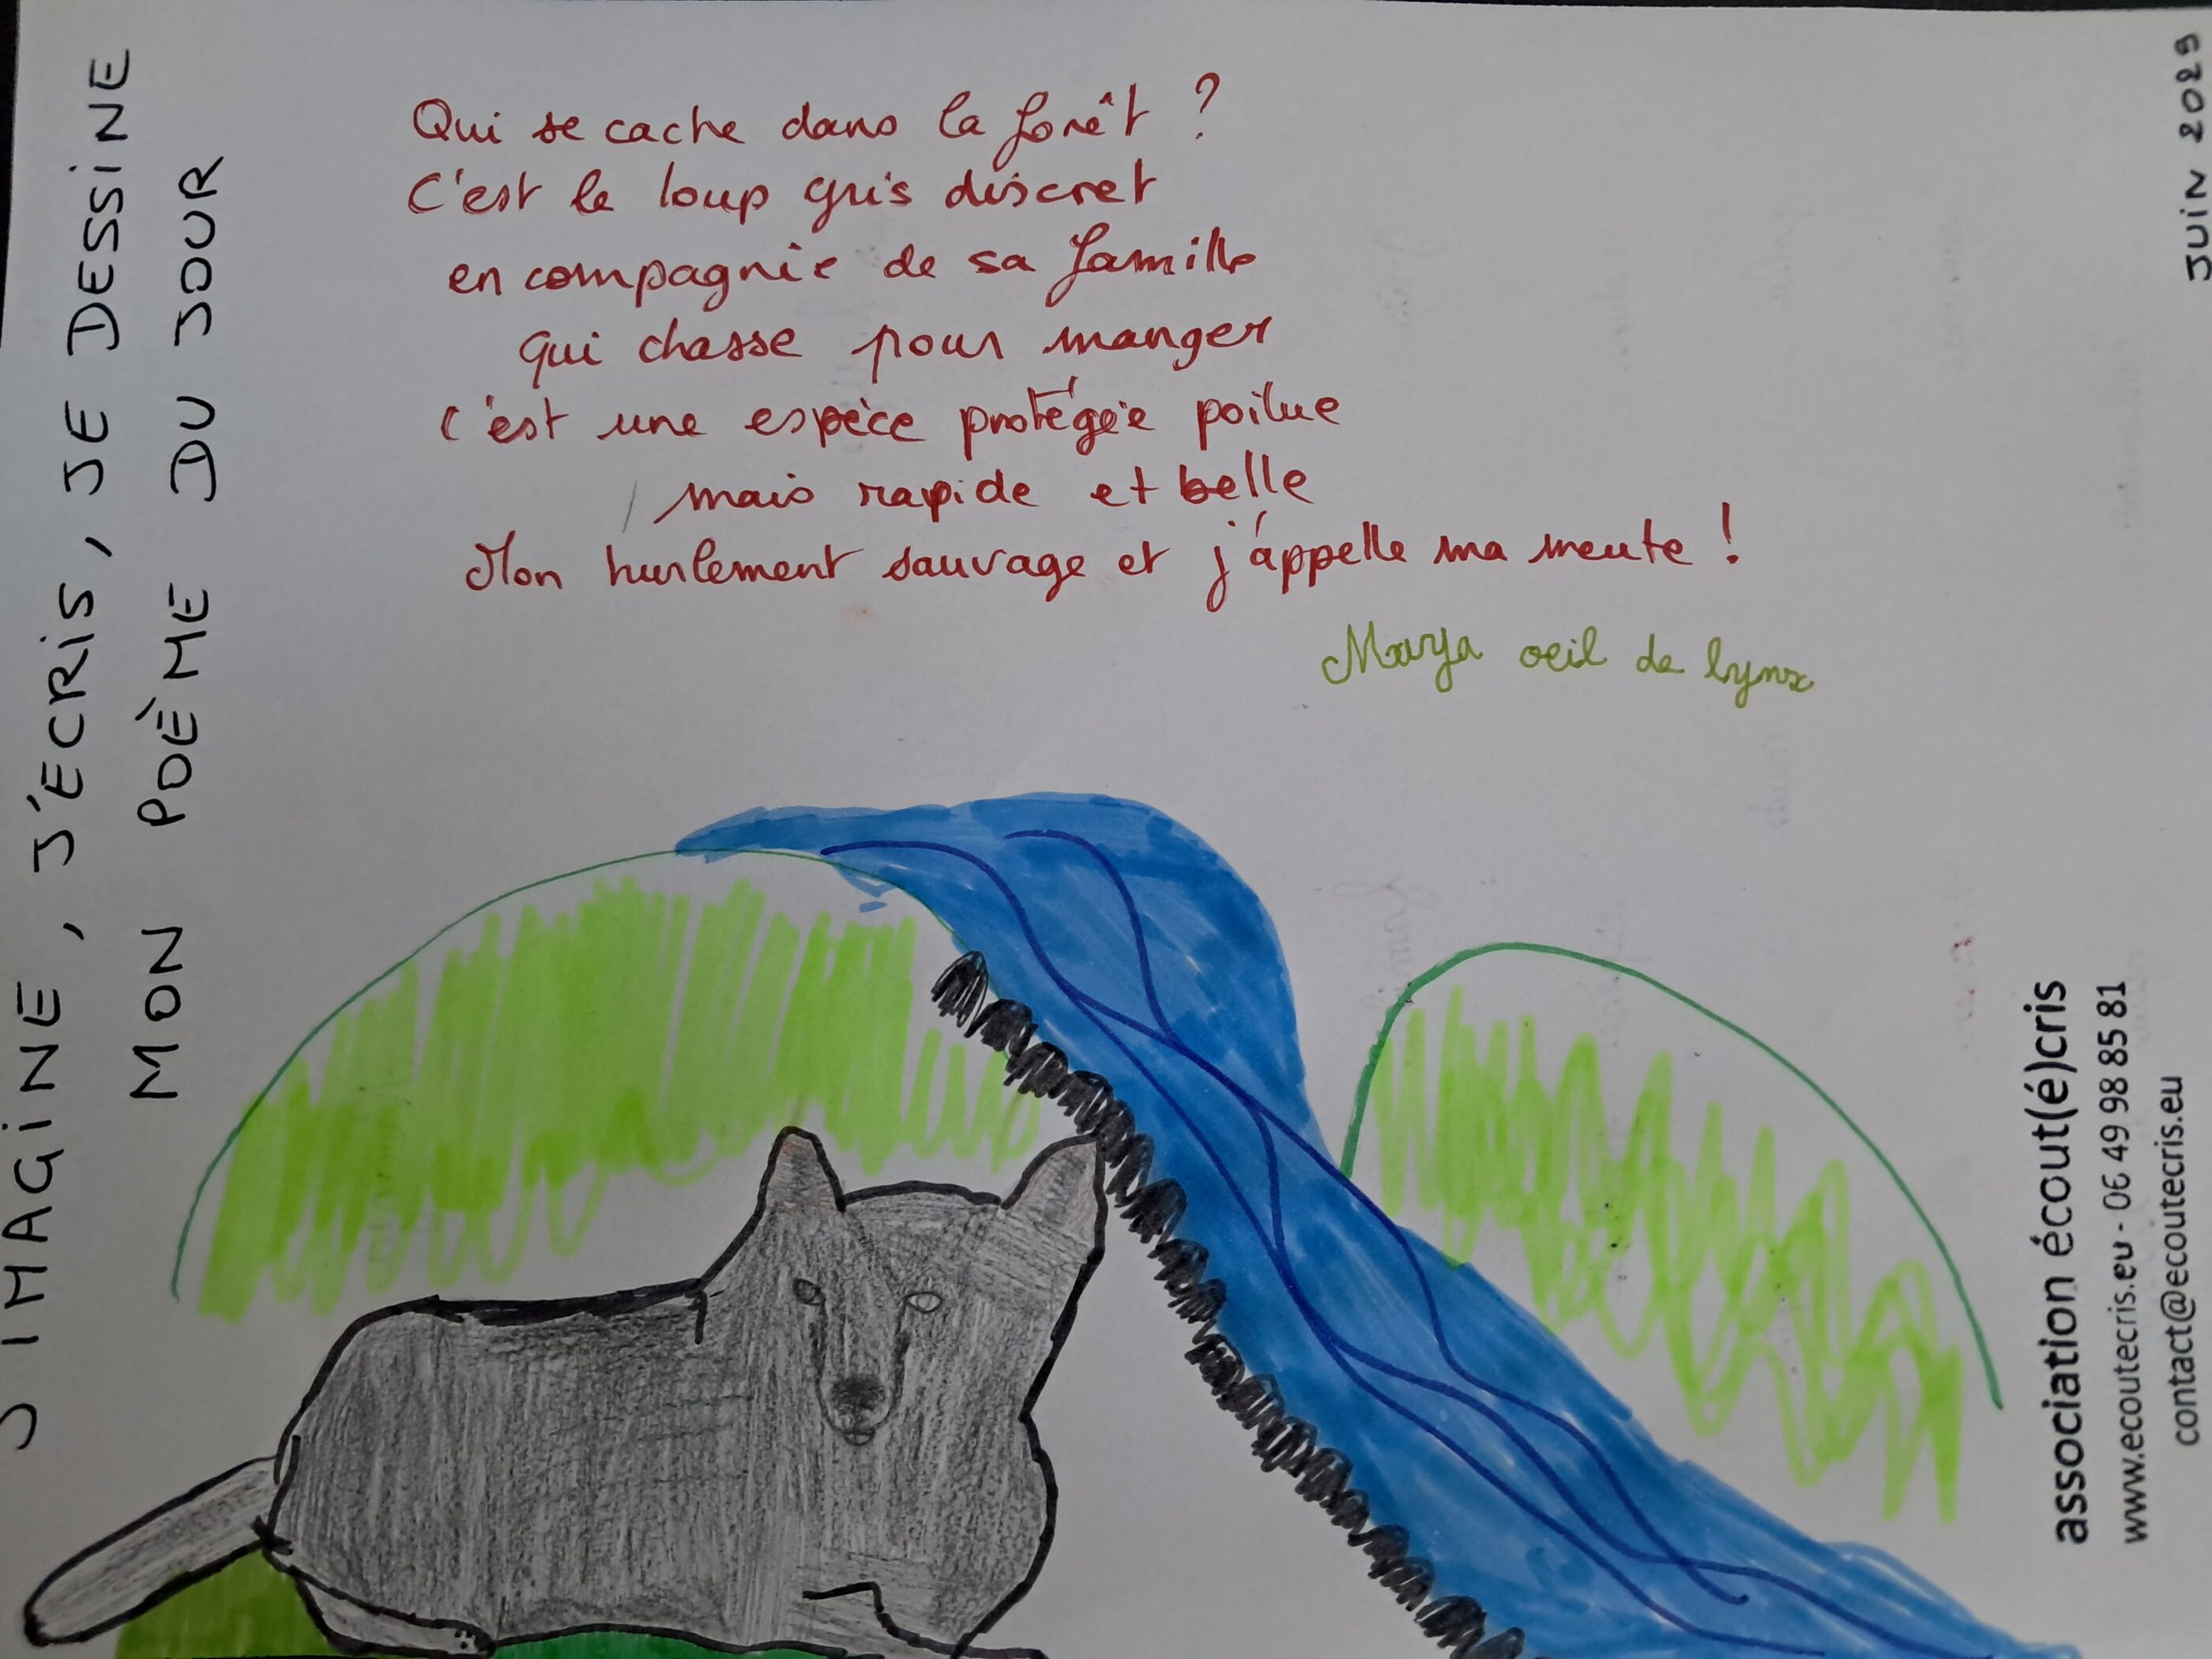 J'IMAGINE, J'ÉCRIS, JE DESSINE
MON POÉME DU JOUR
Qui se cache dans la forêt ?
C'est le loup gris discret
en compagnie de sa famille
qui chasse pour manger
c'est une espèce protégée poilue
mais rapide et belle
Mon hurlement sauvage et j'appelle ma meute !
Marya oeil de lynx
JUIN 2025
association écout(é)cris
www.ecoutecris.eu - 06 49 98 85 81
contact@ecoutecris.eu